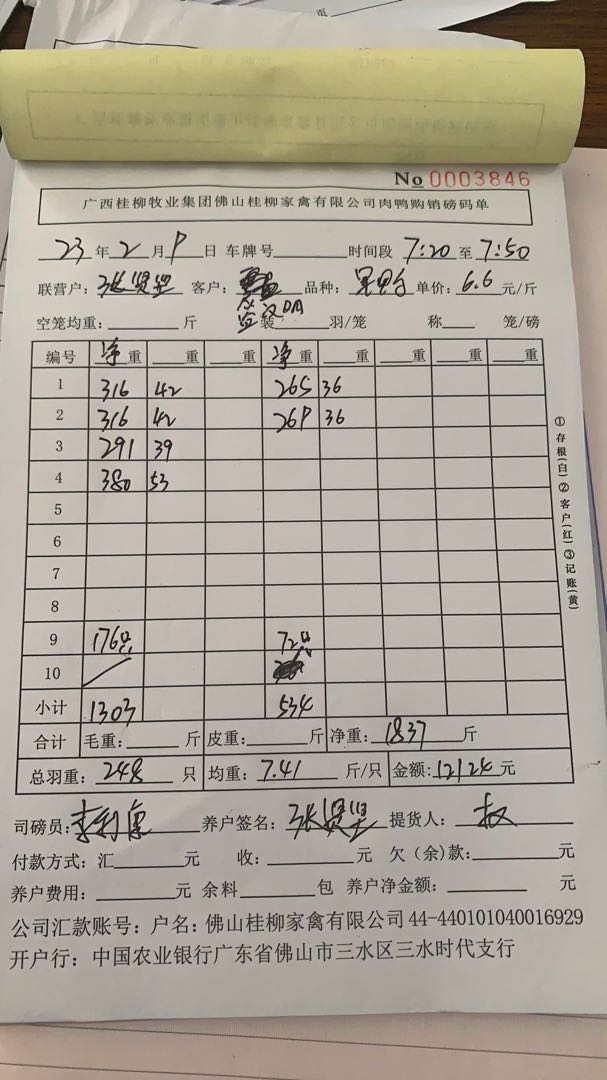 No 0003846
广西桂柳牧业集团佛山桂柳家禽有限公司肉鸭购销磅码单
23 年 2 月 9 日 车牌号 时间段 7:20 至 7:50
联营户: 张贤坚 客户: 品种: 单价: 6.6 元/斤
空笼均重: 斤 装 羽/笼 称 笼/磅
编号 净重 重 重 净重 重 重 重 重
1 316 42 265 36
2 316 42 269 36
3 291 39
4 380 53
5
6
7
8
9 176只 72只
10
小计 1303 534
合计 毛重: 斤 皮重: 斤 净重: 1837 斤
总羽重: 248 只 均重: 7.41 斤/只 金额: 12124 元
司磅员: 养户签名: 张贤坚 提货人: 权
付款方式: 汇 元 收: 元 欠(余)款: 元
养户费用: 元 余料 包 养户净金额: 元
公司汇款账号: 户名: 佛山桂柳家禽有限公司 44-440101040016929
开户行: 中国农业银行广东省佛山市三水区三水时代支行
①存根(白)②客户(红)③记账(黄)